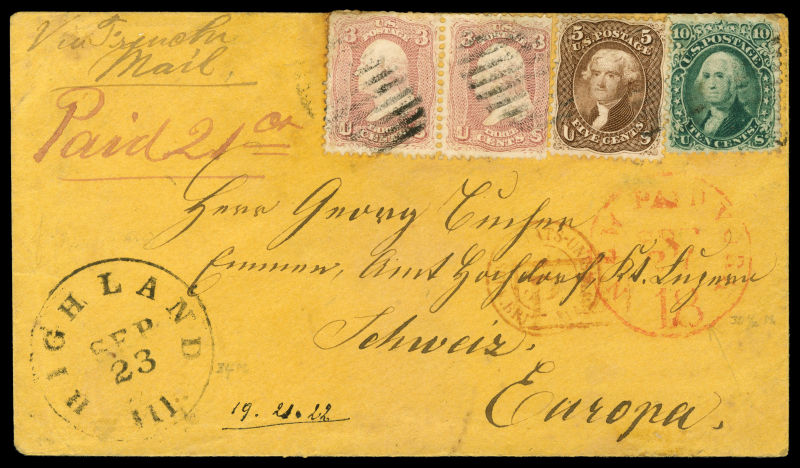 Via French
Mail.
Paid 21 cts
3 U.S. 3
POSTAGE
U THREE S
CENTS
3 U.S. 3
POSTAGE
U THREE S
CENTS
5 5
U.S. POSTAGE
U FIVE CENTS S
10 10
U.S. POSTAGE
U TEN CENTS S
Herr Georg Bucher
Emmen, Amt Hochdorf Kt. Luzern
Schweiz.
Europa.
NEW PAID YORK
18
HIGHLAND
SEP
23
Ill.
19. 21. 22